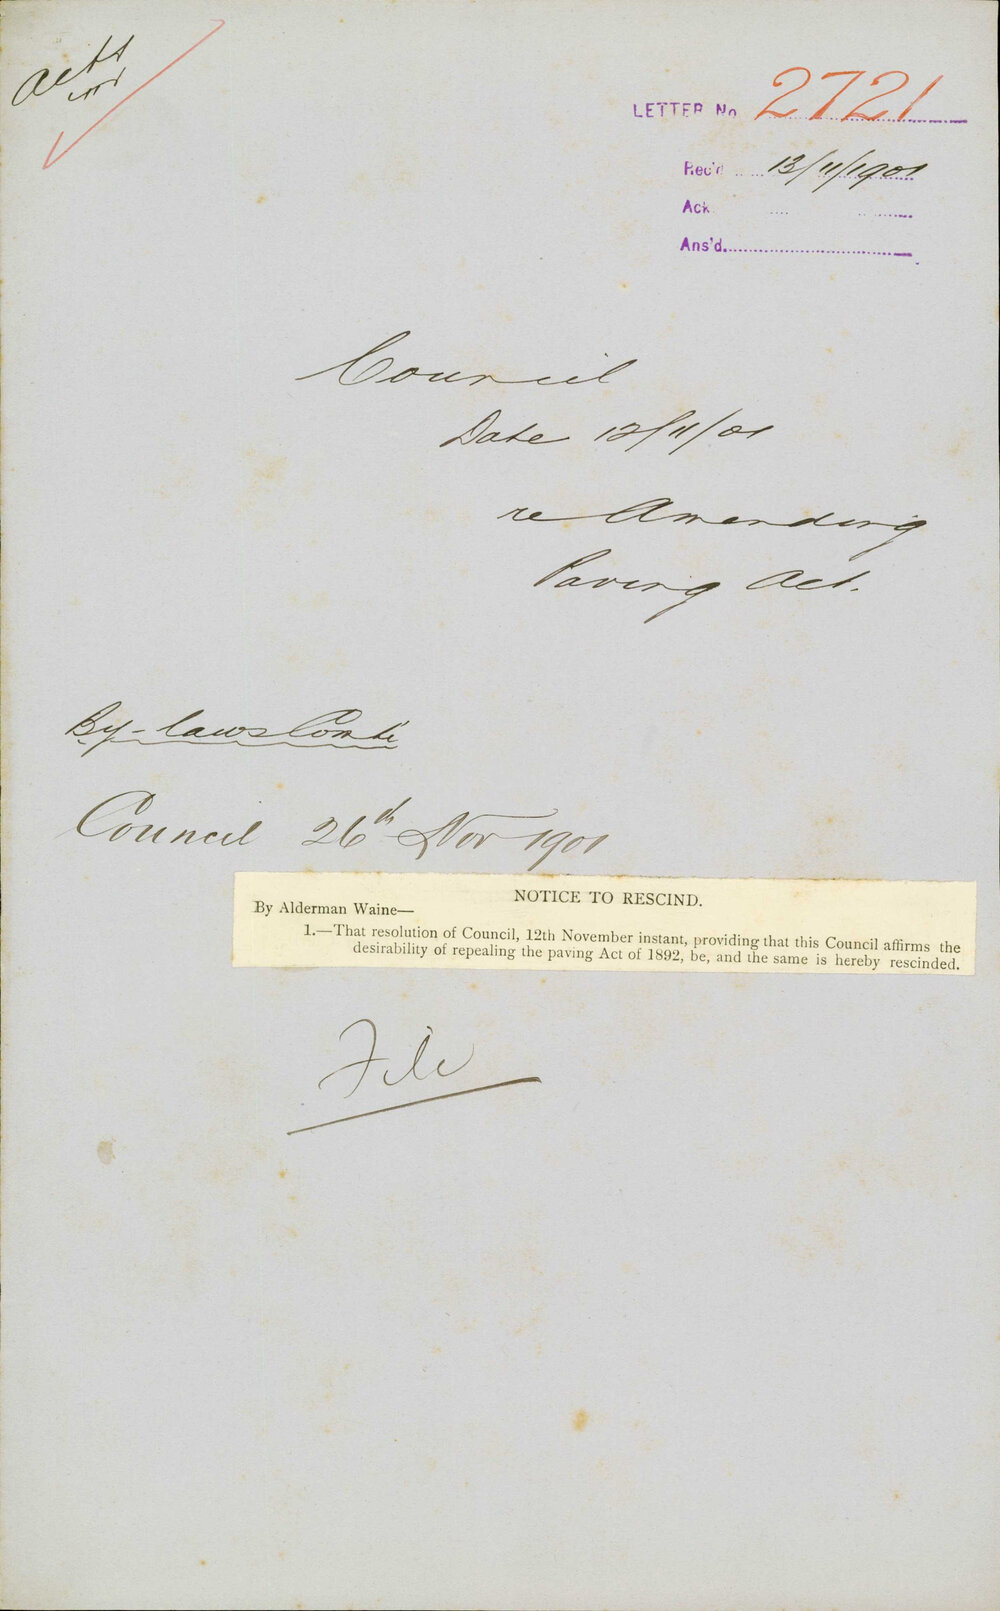 Acts
LETTER No 2721
Rec'd 13/11/1901
Ack
Ans'd.
Council
Date 12/11/01
re Amending
Paving Act.
By-laws Comte
Council 26th Nov 1901
NOTICE TO RESCIND.
By Alderman Waine—
1.—That resolution of Council, 12th November instant, providing that this Council affirms the
desirability of repealing the paving Act of 1892, be, and the same is hereby rescinded.
File